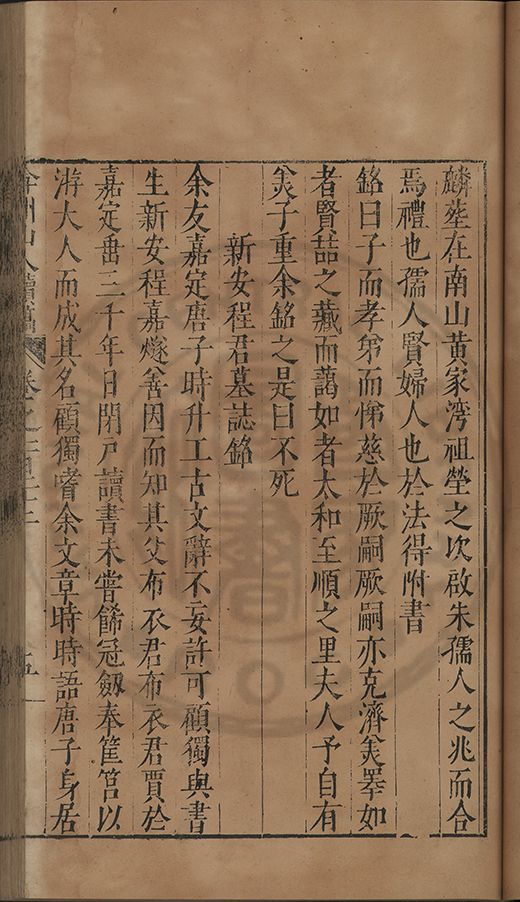 麟塟在南山黃家湾祖塋之次啟朱孺人之兆而合
焉禮也孺人賢婦人也於法得附書
銘曰子而孝弟而悌慈於厥嗣厥嗣亦克濟羙睪如
者賢喆之藏而藹如者太和至順之里夫人予自有
羙子重余銘之是曰不死
新安程君墓誌銘
余友嘉定唐子時升工古文辭不妄許可顧獨與書
生新安程嘉燧善因而知其父布衣君布衣君賈於
嘉定畨三千年日閉戶讀書未嘗餙冠劔奉筐筥以
游大人而成其名顧獨嗜余文章時時語唐子身居
弇州山人續稿 卷之一百二十二 十五